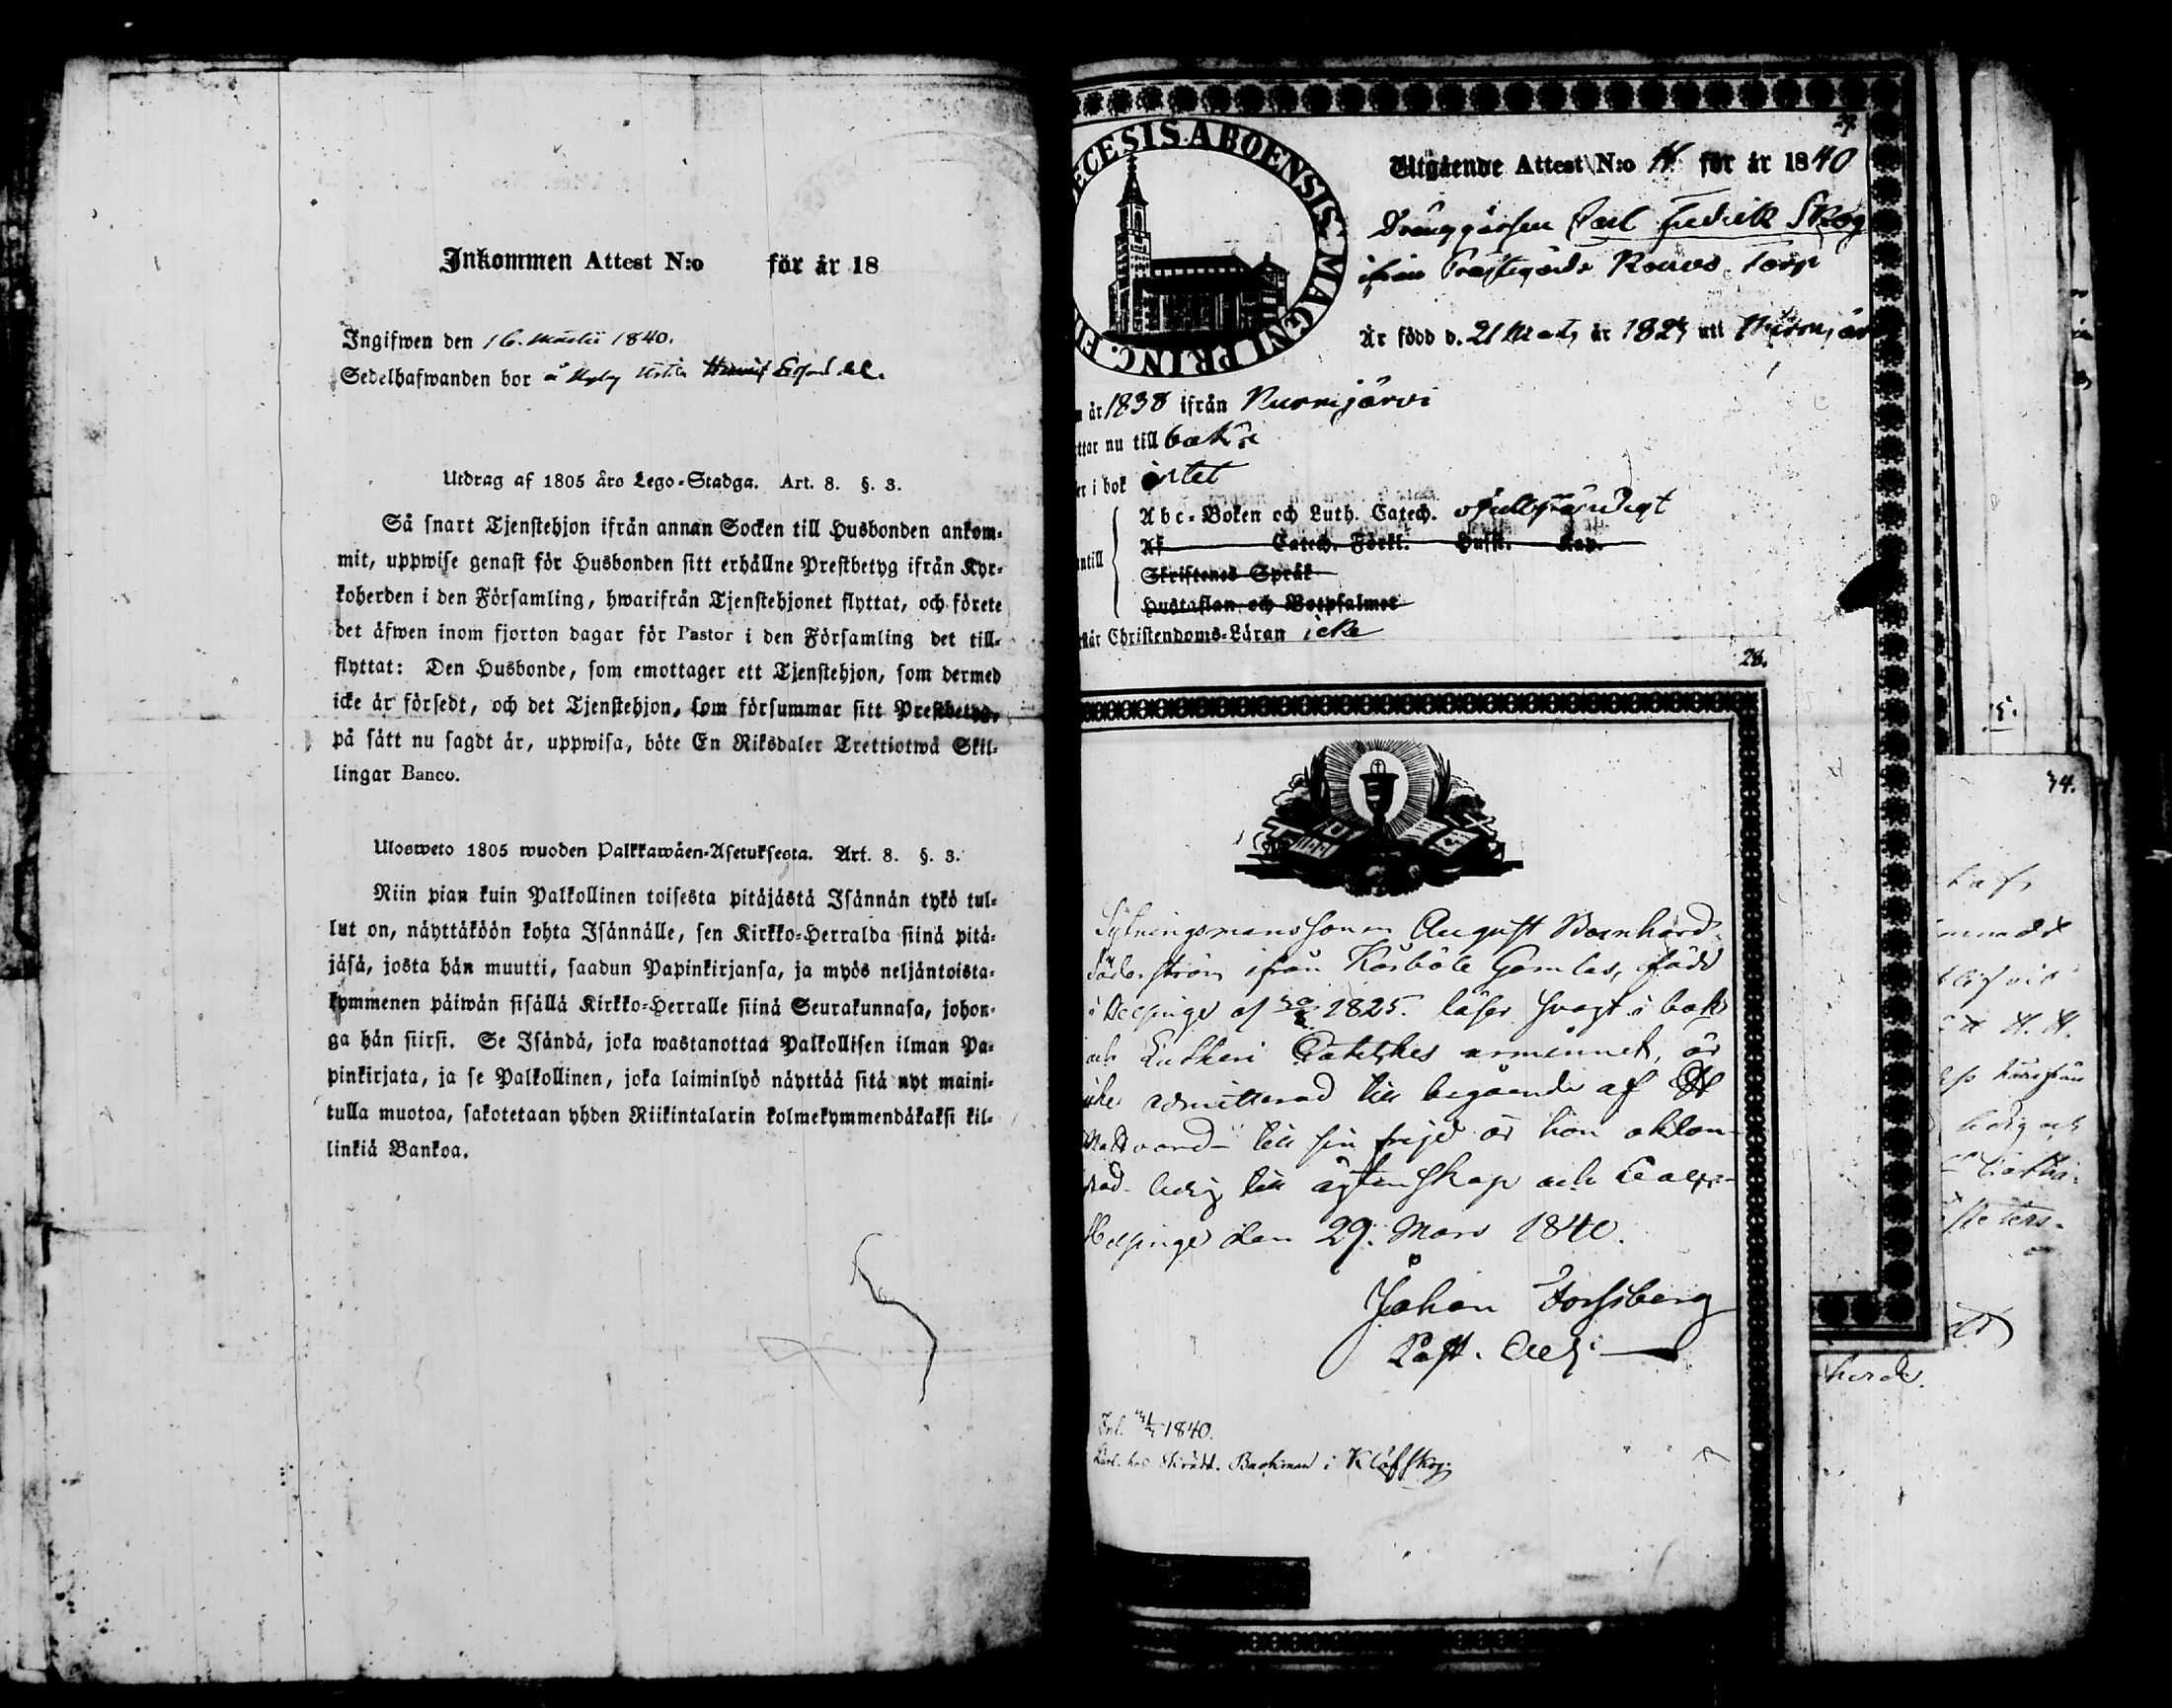 Inkommen Attest N:o för år 18
Ingifwen den 16. Martii 1840.
Sedelhafwanden bor å
Utdrag af 1805 års Lego-Stadga. Art. 8. §. 3.
Så snart Tjenstehjon ifrån annan Socken till Husbonden ankom-
mit, uppwise genast för Husbonden sitt erhållne Prestbetyg ifrån Kyr-
koherden i den Församling, hwarifrån Tjenstehjonet flyttat, och förete
det äfwen inom fjorton dagar för Pastor i den Församling det till-
flyttat: Den Husbonde, som emottager ett Tjenstehjon, som dermed
icke är försedt, och det Tjenstehjon, som försummar sitt Prestbetyg,
på sätt nu sagdt är, uppwisa, böte En Riksdaler Trettiotwå Skil-
lingar Banco.
Ulosweto 1805 wuoden Palkkawäen-Asetuksesta. Art. 8. §. 3.
Niin pian kuin Palkollinen toisesta pitäjästä Isännän tykö tul-
lut on, näyttäköön kohta Isännälle, sen Kirkko-Herralda siinä pitä-
jäsä, josta hän muutti, saadun Papinkirjansa, ja myös neljäntoista-
kymmenen päiwän sisällä Kirkko-Herralle siinä Seurakunnasa, johon-
ga hän siirsi. Se Isändä, joka wastanottaa Palkollisen ilman Pa-
pinkirjata, ja se Palkollinen, joka laiminlyö näyttää sitä nyt maini-
tulla muotoa, sakotetaan yhden Riikintalarin kolmekymmendäkaksi kil-
linkiä Bankoa.
ECESIS ABOENSIS MAGNI PRINC. F
Utgående Attest N:o för år 1840
Dränggåssen Carl Fredrik Skog
ifrån Prästgårds Torp
Är född d. 21 år att Nurmijär
n år 1838 ifrån Nurmijärvi
ttar nu till baka
er i bok intet
Abc-Boken och Luth. Catech. ofullständigt
Af Catech. Förkl. Hust. Kap.
ntill Skriftenes Språk
Hustaflan och Botpsalmer
står Christendoms-Läran icke
28.
Sytningsmanssonen August Bernhard
Söderström ifrån Kårböle Gamlas, född
i Helsinge af 1825. läser svagt i bok
och Lutheri Cateches utminnet, är
icke admitterad till begående af H H
Nattvard till sin frejd är han oklan-
drad ledig till ägtenskap och
Helsinge den 29. Mars 1840.
Johan Forssberg
Past. Adj:
Inl. 1840.
hos Skrädd. Backman i
34.